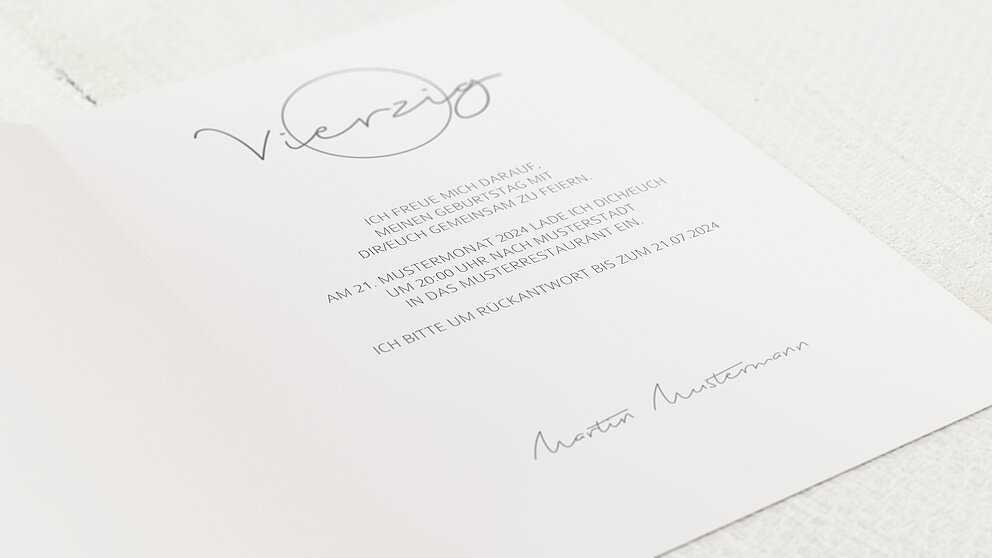 Vierzig
ICH FREUE MICH DARAUF,
MEINEN GEBURTSTAG MIT
DIR/EUCH GEMEINSAM ZU FEIERN.
AM 21. MUSTERMONAT 2024 LADE ICH DICH/EUCH
UM 20:00 UHR NACH MUSTERSTADT
IN DAS MUSTERRESTAURANT EIN.
ICH BITTE UM RÜCKANTWORT BIS ZUM 21.07.2024
Martin Mustermann